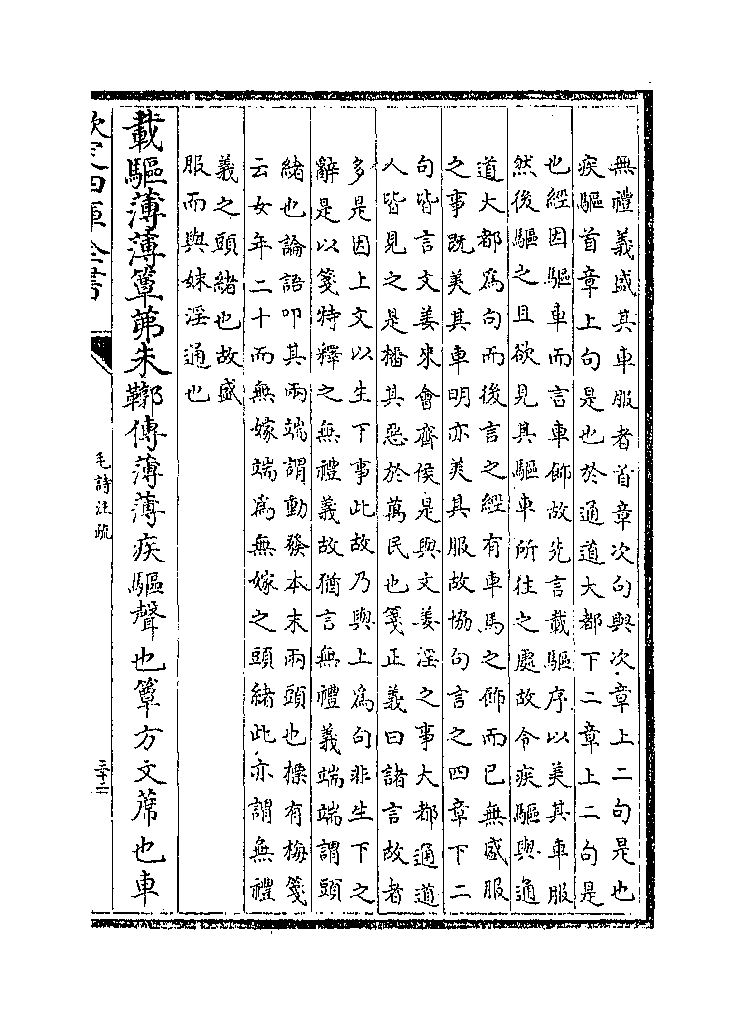 無禮義盛其車服者首章次句與次章上二句是也
疾驅首章上句是也於通道大都下二章上二句是
也經因驅車而言車飾故先言載驅序以美其車服
然後驅之且欲見其驅車所往之處故令疾驅與通
道大都為句而後言之經有車馬之飾而已無盛服
之事既美其車明亦美其服故協句言之四章下二
句皆言文姜來會齊侯是與文姜淫之事大都通道
人皆見之是播其惡於萬民也箋正義曰諸言故者
多是因上文以生下事此故乃與上為句非生下之
辭是以箋特釋之無禮義故猶言無禮義端端謂頭
緒也論語叩其兩端謂動發本末兩頭也摽有梅箋
云女年二十而無嫁端為無嫁之頭緒此亦謂無禮
義之頭緒也故盛
服而與妹淫通也
載驅薄薄簟茀朱鞹傳薄薄疾驅聲也簟方文蓆也車
欽定四庫全書
毛詩注疏
三十二